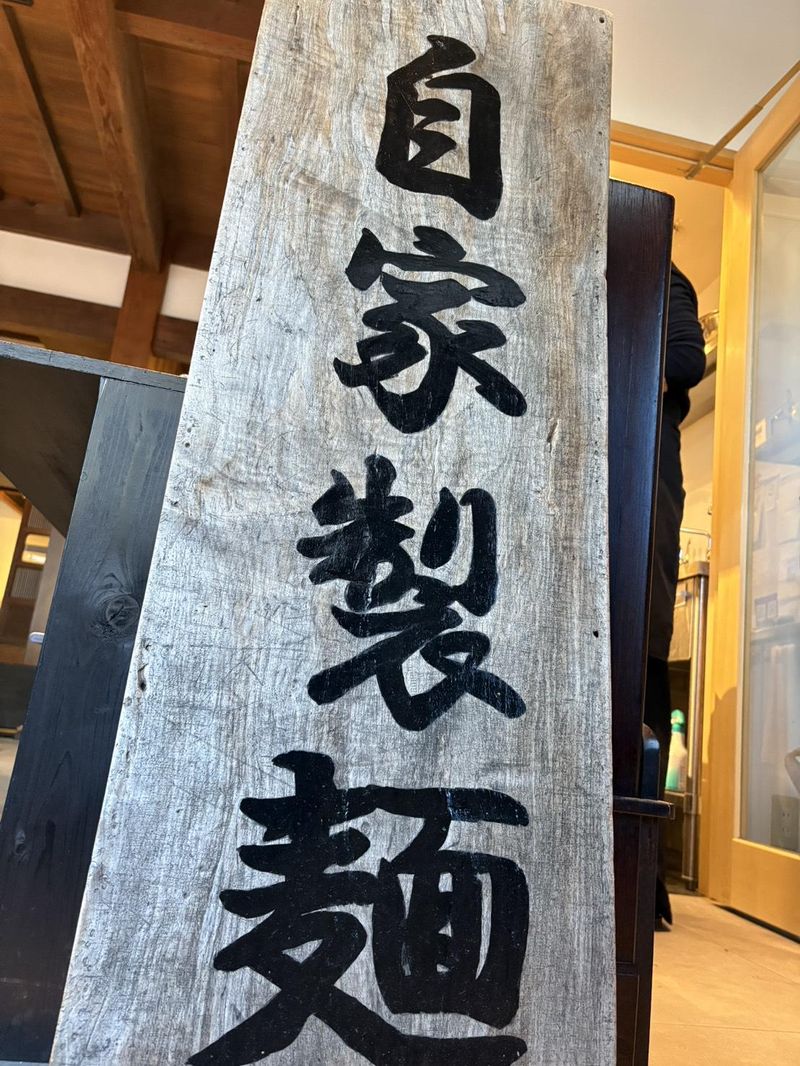 自家製麺